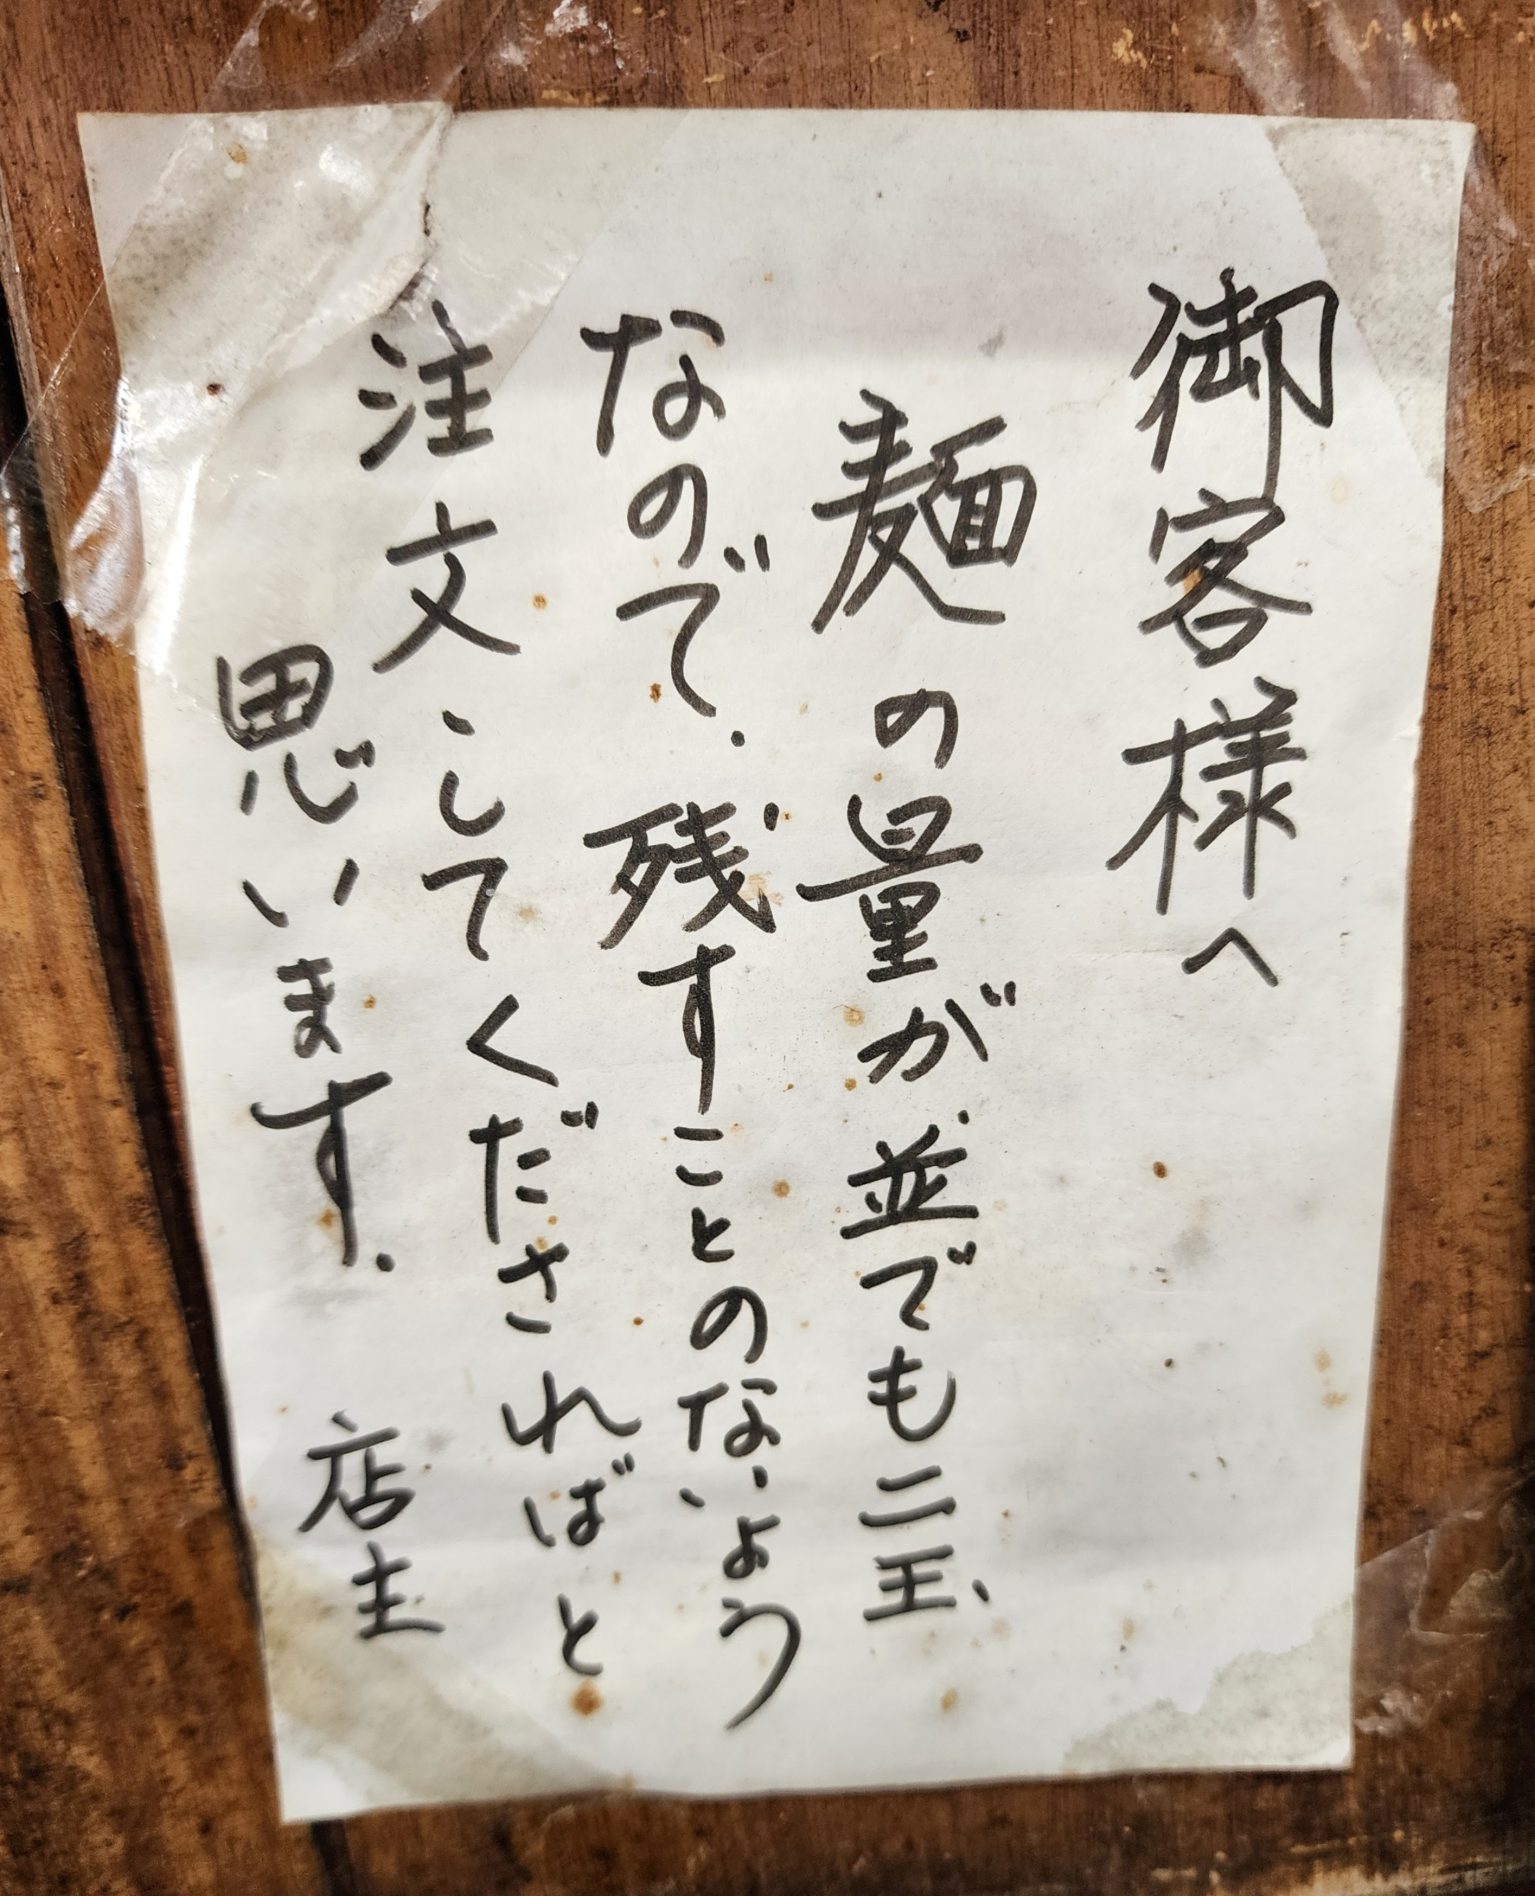 御客様へ
麺の量が並でも二玉、
なので、残すことのないよう
注文してくださればと
思います。
店主